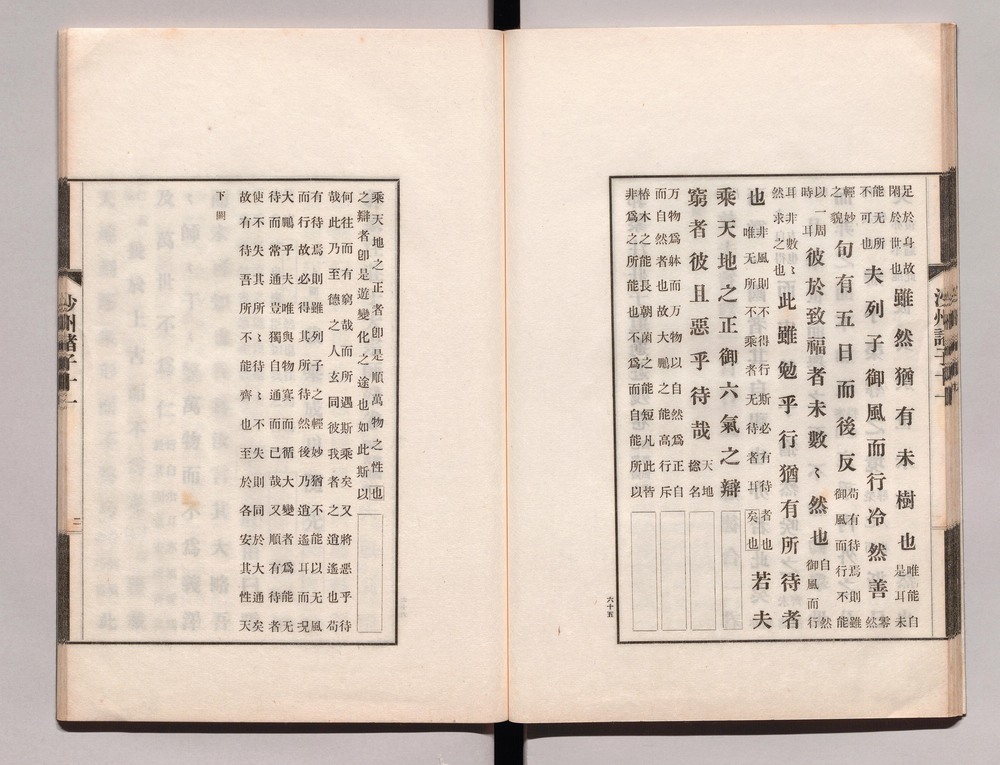 足於身故
閑於世也
雖然猶有未樹也
唯能自
是耳未
能无所
不可也
夫列子御風而行冷然善
零
然
輕妙
之貌
句有五日而後反
苟有待焉則雖
御風而行不能
以一周
時耳
彼於致福者未數〻然也
自然
御風而行
耳非數〻
然求之也
此雖勉乎行猶有所待者
也
非風則不得行斯必有待者也
唯无所不乘者无待者耳矣也
若夫
乘天地之正御六氣之辯
窮者彼且惡乎待哉
天地
捴名
万物爲躰而万物以自然爲正自
而自然者也故大鵬之能高行斥
椿木之能長朝菌之能短凡此皆
非爲之所能也不爲而自能所以
六十五
沙州諸子十一
乘天地之正者卽是順萬物之性也
之辯者卽是遊變化之途也如此斯以
何往而有窮哉而所遇斯乘矣又將惡乎待
哉此乃至德之人玄同彼我者之逍遙也苟
有待焉則雖列子之輕妙猶不能以无風
而行故必得其所待然後乃逍遙耳而況
大鵬乎夫唯與物㝠而循大變者爲能无
待而常通豈獨自通而已哉又順有待者
使不失其所〻待〻不失則同於大通矣
故有待吾所不能齊也至於各安其性天
下闕
沙州諸子十一
二